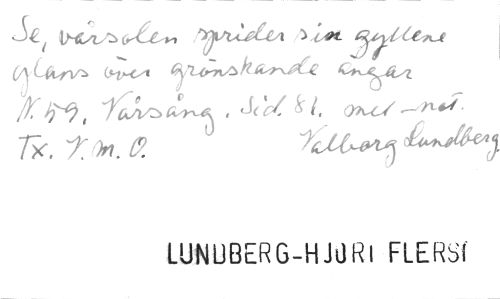 Se, vårsolen sprider sin gyllene
glans över grönskande ängar
N. 59, Vårsång. Sid. 81. mel-not.
Tx. V. m. O.
Valborg Lundberg
LUNDBERG-HJORT FLERST